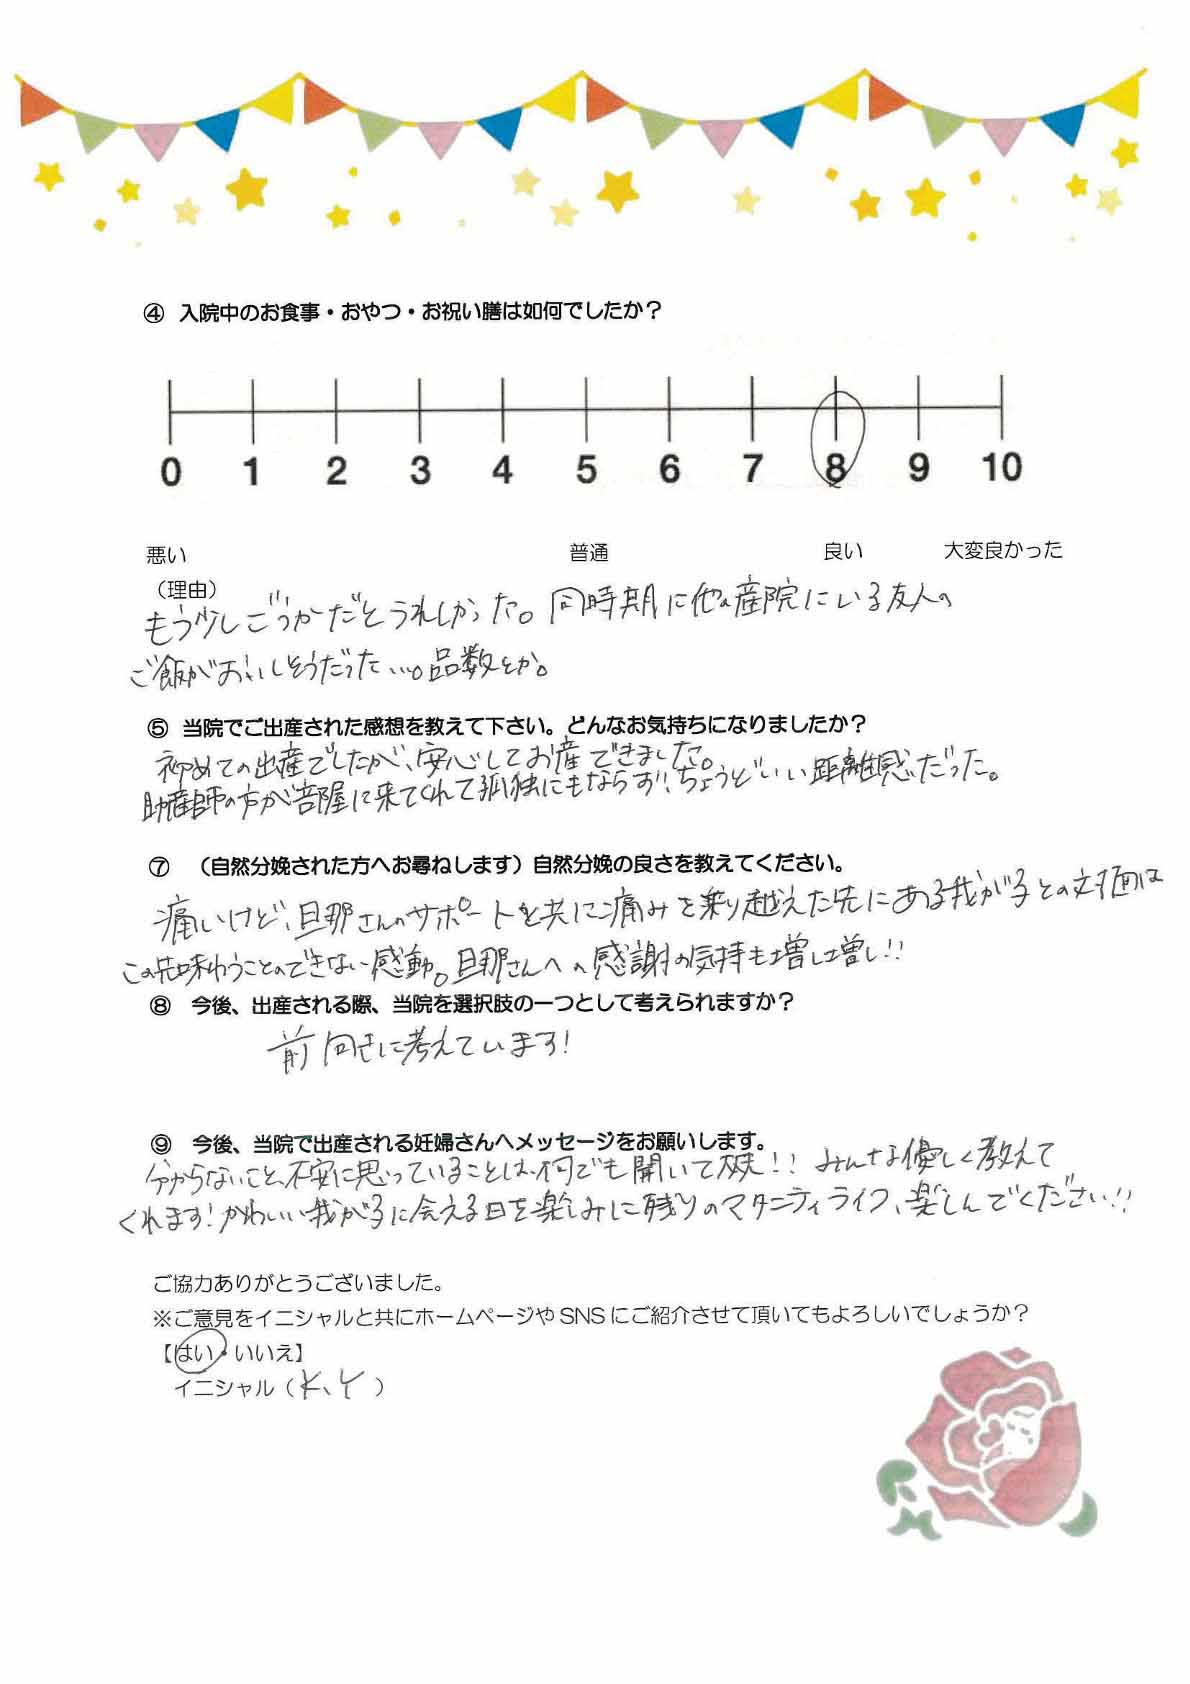 ④ 入院中のお食事・おやつ・お祝い膳は如何でしたか？
0 1 2 3 4 5 6 7 8 9 10
悪い 普通 良い 大変良かった
（理由）
もう少しごうかだとうれしかった。同時期に他の産院にいる友人の
ご飯がおいしそうだった…。品数とか。
⑤ 当院でご出産された感想を教えて下さい。どんなお気持ちになりましたか？
初めての出産でしたが、安心してお産できました。
助産師の方が部屋に来てくれて孤独にもならず、ちょうどいい距離感だった。
⑦ （自然分娩された方へお尋ねします）自然分娩の良さを教えてください。
痛いけど、旦那さんのサポートと共に痛みを乗り越えた先にある我が子との対面は
この先味わうことのできない感動。旦那さんへの感謝の気持も増し増し!!
⑧ 今後、出産される際、当院を選択肢の一つとして考えられますか？
前向きに考えています!
⑨ 今後、当院で出産される妊婦さんへメッセージをお願いします。
分からないこと、不安に思っていることは、何でも聞いて大丈夫!! みんな優しく教えて
くれます!かわいい我が子に会える日を楽しみに残りのマタニティライフ、楽しんでください!!
ご協力ありがとうございました。
※ご意見をイニシャルと共にホームページや SNS にご紹介させて頂いてもよろしいでしょうか？
【はい・いいえ】
イニシャル（K、Y）